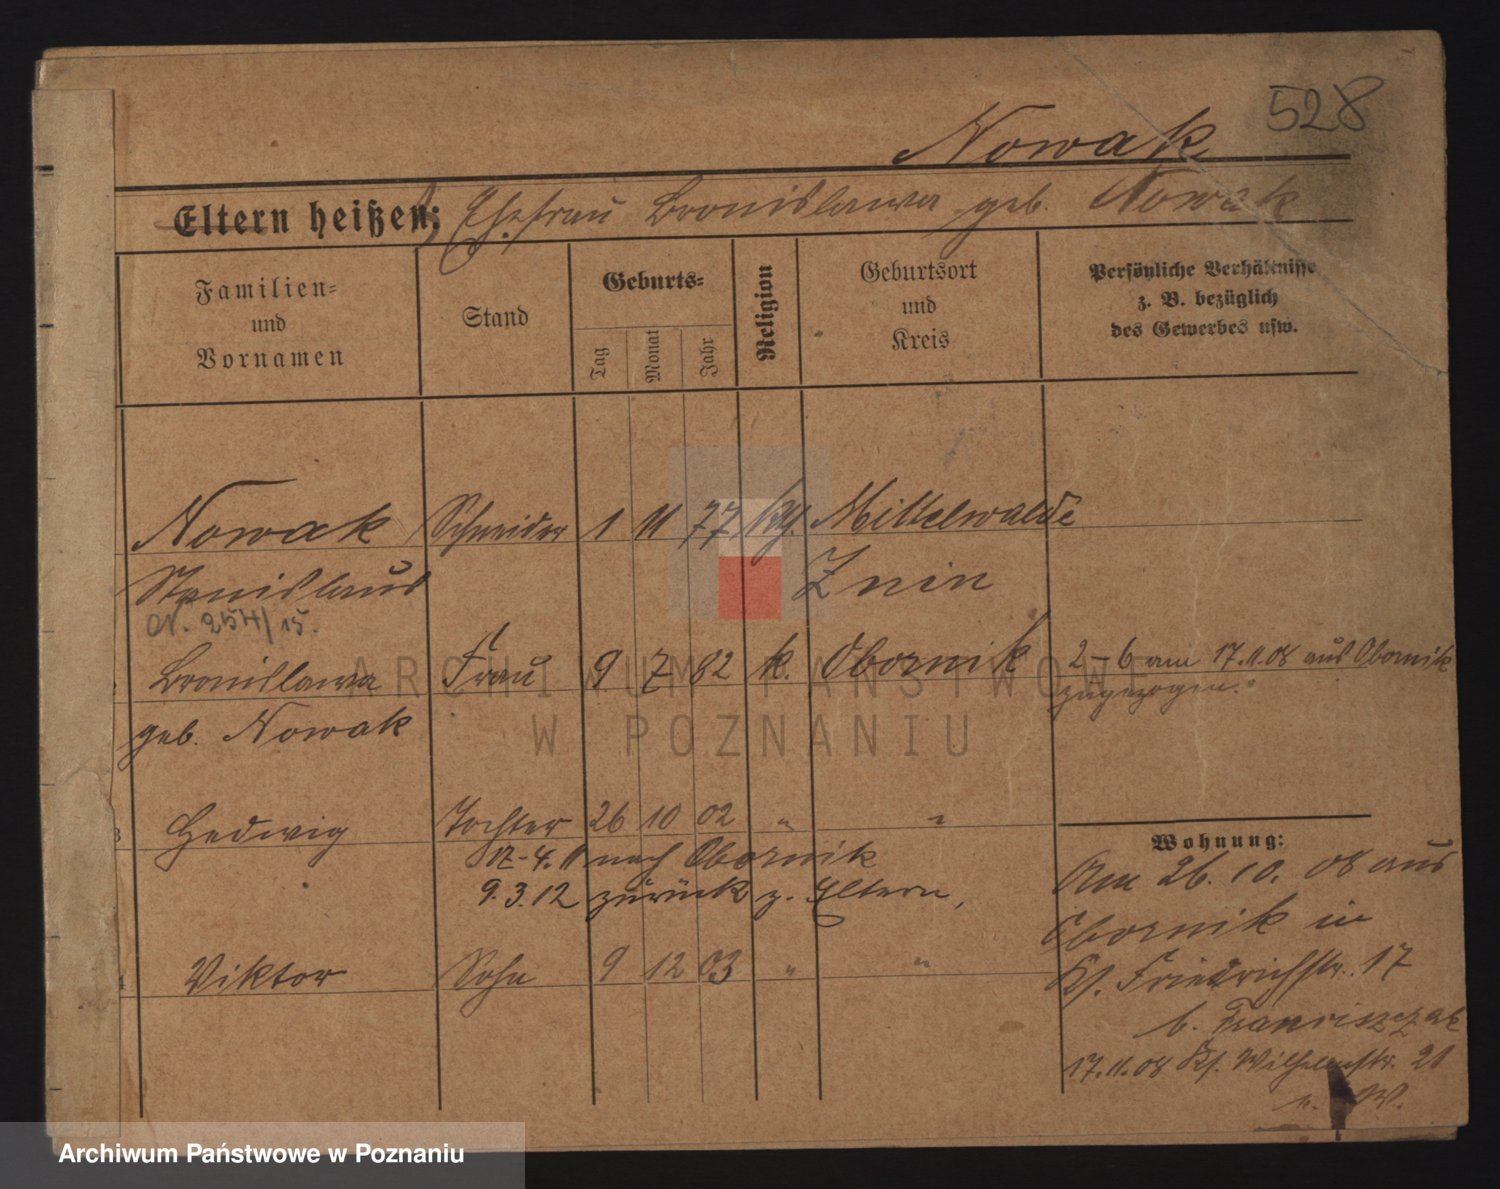 528
Nowak
Eltern heißen: Ehefrau Bronislawa geb. Nowak
Familien=
und
Vornamen
Stand
Geburts=
Tag
Monat
Jahr
Religion
Geburtsort
und
Kreis
Persönliche Verhältnisse
z. B. bezüglich
des Gewerbes usw.
Nowak Schneider 1 11 77 Mittelwalde
Stanislaus Znin
N. 254/15.
Bronislawa Frau 9 7 82 k. Obornik 2–6 am 17.11.08 aus Obornik
zugezogen.
geb. Nowak
3 Hedwig Tochter 26 10 02 " "
12-4.11 nach Obornik
9.3.12 zurück z. Eltern,
4 Viktor Sohn 9 12 03 " "
Wohnung:
Am 26.10.08 aus
Obornik in
Friedrichstr. 17
b. Franciszczak
17.11.08 Wilhelmstr. 21
ARCHIWUM PAŃSTWOWE
W POZNANIU
Archiwum Państwowe w Poznaniu